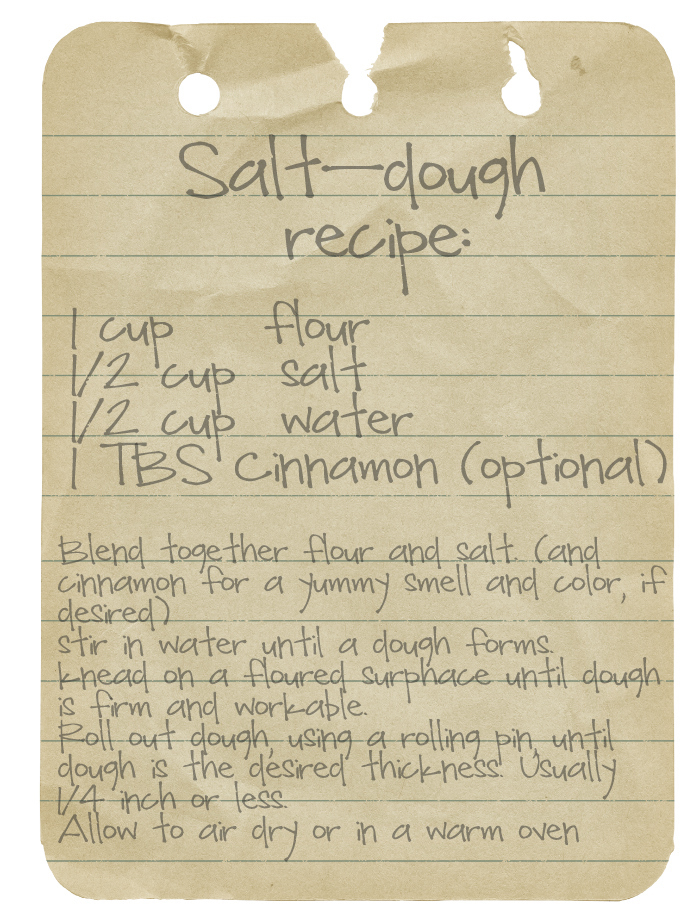 Salt-dough
recipe:
1 cup flour
1/2 cup salt
1/2 cup water
1 TBS Cinnamon (optional)
Blend together flour and salt. (and
cinnamon for a yummy smell and color, if
desired)
stir in water until a dough forms.
knead on a floured surphace until dough
is firm and workable.
Roll out dough, using a rolling pin, until
dough is the desired thickness. Usually
1/4 inch or less.
Allow to air dry or in a warm oven